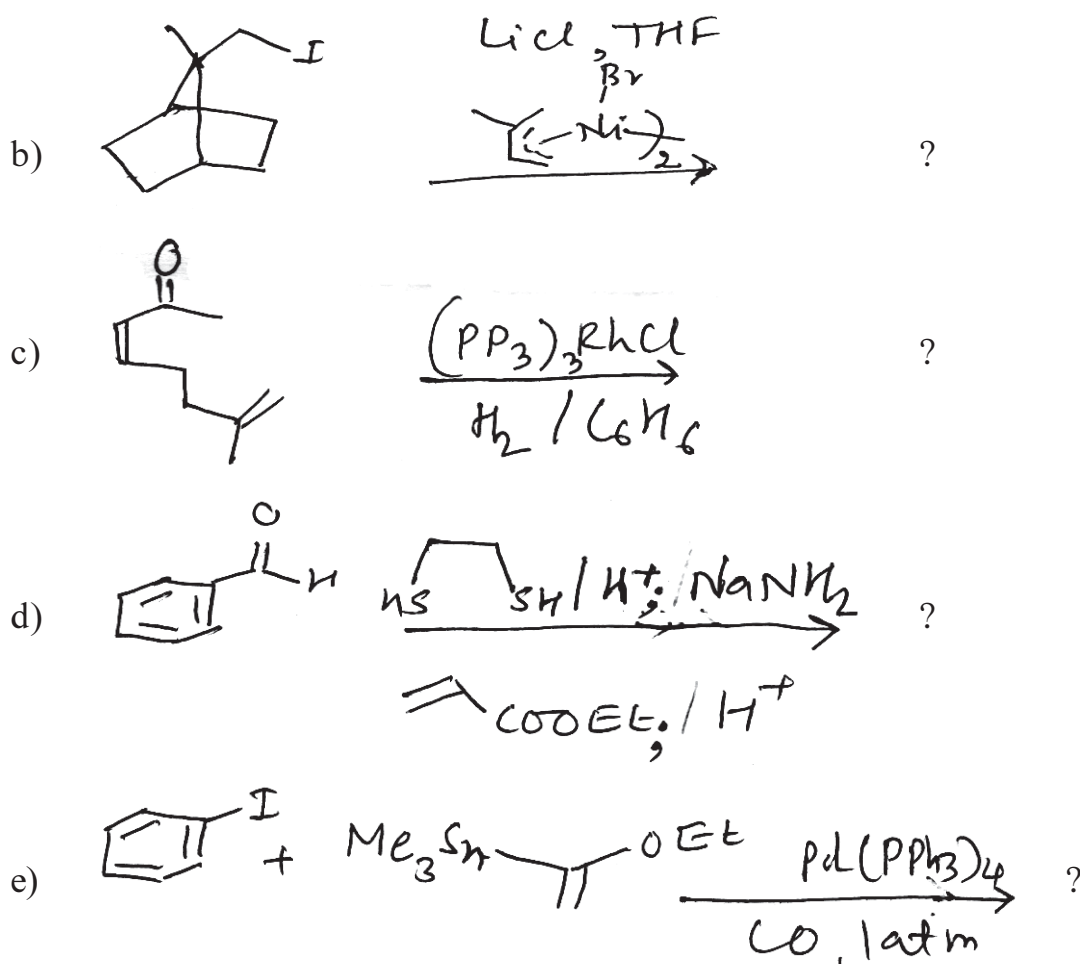 I
LiCl, THF
Br
b)
Ni
)2
?
O
c)
(PP3)3RhCl
?
H2 / C6H6
O
H
d)
HS SH / H+; / NaNH2
?
COOEt; / H+
I
e)
+
Me3Sn
OEt
Pd(PPh3)4
?
CO, 1atm